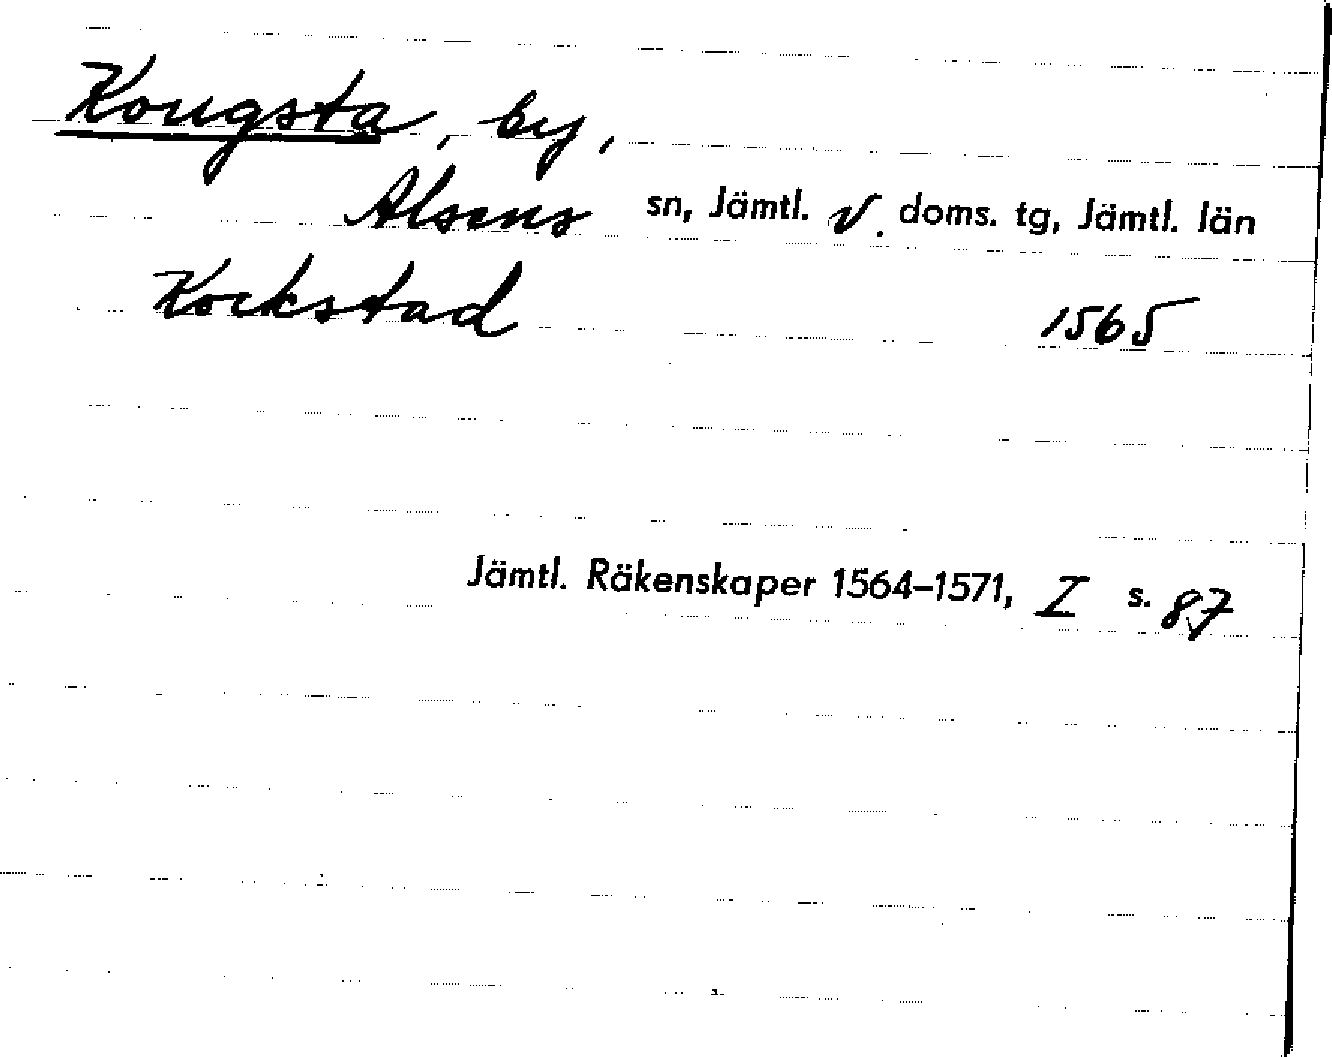 Kougsta, by,
Alsens sn, Jämtl. v. doms. tg, Jämtl. län
Kockstad 1565
Jämtl. Räkenskaper 1564–1571, I s. 87